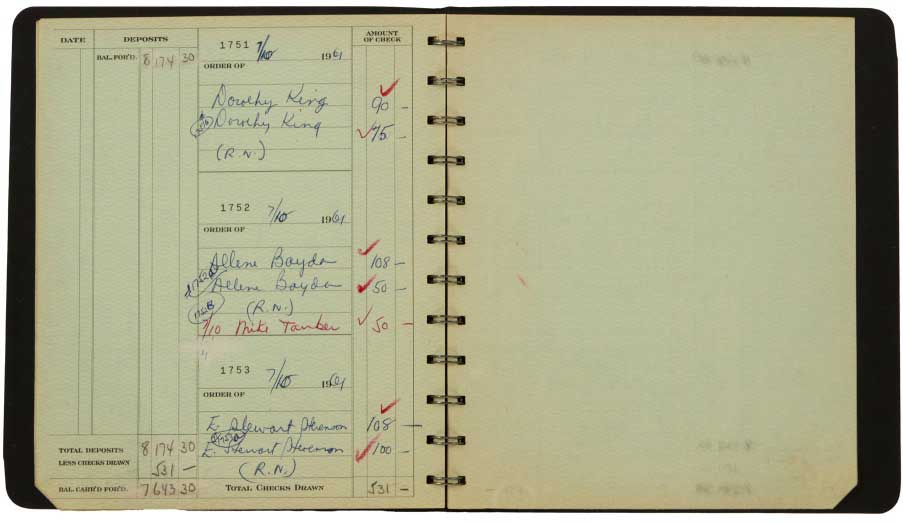 DATE DEPOSITS 1751 7/10 1961 AMOUNT OF CHECK
BAL. FOR'D. 8 174 30
ORDER OF
Dorothy King 90 —
Dorothy King 75 —
(R.N.)
1752 7/10 1961
ORDER OF
Allene Boyda 108 —
1752A Allene Boyda 50 —
1752B (R.N.)
7/10 Mike 50 —
1753 7/10 1961
ORDER OF
E. Stewart 108 —
TOTAL DEPOSITS 8 174 30 E. Stewart 100 —
LESS CHECKS DRAWN 531 — (R.N.)
BAL. CARR'D FOR'D. 7643 30 TOTAL CHECKS DRAWN 531 —